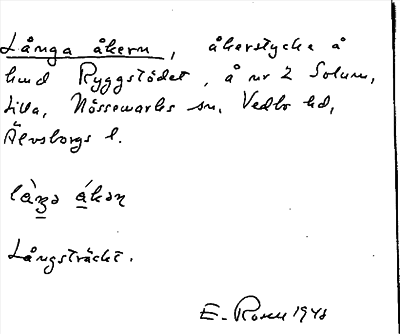 Långa åkern, åkerstycke å
lund Ryggstödet, å nr 2 Solum,
Lilla, Nössemarks sn, Vedbo hd,
Älvsborgs l.
làŋa ákən
Långsträckt.
E. Rosen 1948